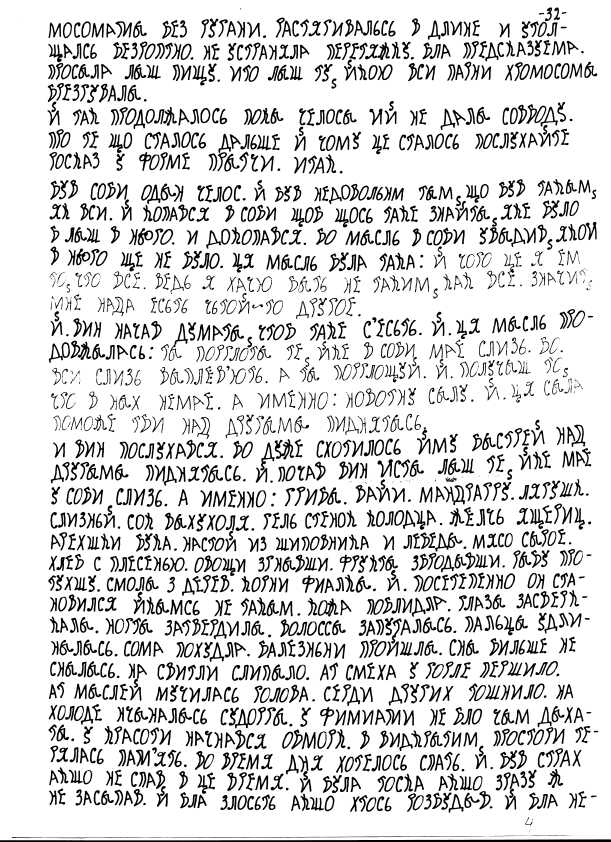 -32-
МОСОМАТИВ БЕЗ РУГАНИ. РАСТЯГИВАЛЬСЬ В ДЛИНЕ И УТОЛ-
ЩАЛСЬ БЕЗРОПТНО. НЕ УСТРАНЯЛА ПЕРЕТЯЖКУ. БЛА ПРЕДСКАЗУЕМА.
ПРОСЫЛА ЛЫШ ПИЩУ. ИТО ЛЫШ ТУ, ЙКОЮ ВСИ ПАРНИ ХРОМОСОМЫ
БРЕЗГУВАЛЫ.
Й ТАК ПРОДОЛЖАЛОСЬ ПОКЫ ЧЕЛОСЫ ИЙ НЕ ДАЛЫ СОВВОДУ.
ПРО ТЕ ЩО СТАЛОСЬ ДАЛЬШЕ Й ЧОМУ ЦЕ СТАЛОСЬ ПОСЛУХАЙТЕ
РОСКАЗ У ФОРМЕ ПРЫТЧИ. ИТАК.
БУВ СОБИ ОДЫН ЧЕЛОС. Й БУВ НЕДОВОЛЬНМ ТЫМ, ЩО БУВ ТАКЫМ,
ЯК ВСИ. Й КОПАВСЯ В СОБИ ЩОБ ЩОСЬ ТАКЕ ЗНАЙТЫ, ЯКЕ БУЛО
Б ЛЫШ В НЬОГО. И ДОКОПАВСЯ. БО МЫСЛЬ В СОБИ УВЫДИВ, ЯКОЙ
В НЬОГО ЩЕ НЕ БУЛО. ЦЯ МЫСЛЬ БУЛА ТАКА: Й ЧОГО ЦЕ Я ЕМ
ТО, ЧТО ВСЕ. ВЕДЬ Я ХАЧЮ БЫТЬ НЕ ТАКИМ, КАК ВСЕ. ЗНАЧИТ,
МНЕ НАДА ЕСЬТЬ ЧЬТОЙ-ТО ДРУГОЕ.
Й. ВИН НАЧАВ ДУМАТЫ, ЧТОБ ТАКЕ С'ЕСЬТЬ. Й. ЦЯ МЫСЛЬ ПРО-
ДОВЖАЛАСЬ: ТЫ ПОГГЛОТЫ ТЕ, ЙКЕ В СОБИ МАЕ СЛИЗЬ. БО.
ВСИ СЛИЗЬ ВЫПЛЕВ'ЮТЬ. А ТЫ ПОГГЛОЩУЙ. Й. ПОЛУЧЫШ ТО,
ЧТО В НЫХ НЕМАЕ. А ИМЕННО: НОВОТНУ СЫЛУ. Й. ЦЯ СЫЛА
ПОМОЖЕ ТБИ НАД ДРУГЫМЫ ПИДНЯТЫСЬ,
И ВИН ПОСЛУХАВСЯ. БО ДУЖЕ СХОТИЛОСЬ ЙМУ БЫСТРЕЙ НАД
ДРУГЫМЫ ПИДНЯТЫСЬ. Й. ПОЧАВ ВИН ИСТЫ ЛЫШ ТЕ, ЙКЕ МАЕ
У СОБИ СЛИЗЬ. А ИМЕННО: ГРИБЫ. ВАЙИ. МАНДГАГРУ. ЛЯГУШК.
СЛИЗНЬЙ. СОК ВЫХУХОЛЯ. ГЕЛЬ СТЕНОК КОЛОДЦА. ЖЕЛЧЬ ЯЩЕРИЦ.
АРЕХШКИ БУКА. НАСТОЙ ИЗ ШИПОВНИКА И ЛЕБЕДЫ. МЯСО СЫРОЕ.
ХЛЕБ С ПЛЕСЕНЬЮ. ОВОЩИ ЗГНЫВШИ. ФРУКТЫ ЗБРОДЫВШИ. РЫБУ ПРО-
ТУХШУ. СМОЛА З ДЕРЕВ. КОРНИ ФИАЛКЫ. Й. ПОСТЕПЕННО ОН СТА-
НОВИЛСЯ ЙКЫМСЬ НЕ ТАКЫМ. КОЖА ПОБЛИДЛА. ГЛАЗА ЗАСВЕРК-
КАЛЫ. НОГТЫ ЗАТВЕРДИЛЫ. ВОЛОССЫ ЗАПУТАЛЫСЬ. ПАЛЬЦЫ УДЛИ-
НЫЛЫСЬ. СОМА ПОХУДЛА. БАЛЕЗНЬНИ ПРОЙШЛЫ. СНЫ БИЛЬШЕ НЕ
СНЫЛЫСЬ. НА СВИТЛИ СЛИПАЛО. АТ СМЕХА У ГОРЛЕ ПЕРШИЛО.
АТ МЫСЛЕЙ МУЧИЛАСЬ ГОЛОВА. СЕРДИ ДРУГИХ ТОШНИЛО. НА
ХОЛОДЕ НЧЫНАЛАСЬ СУДОРГА. У ФИМИАМИ НЕ БЛО ЧЫМ ДЫХА-
ТЫ. У КРАСОТИ НАЧНАВСЯ ОБМОРК. В ВИДКРЫТИМ, ПРОСТОРИ ТЕ-
РЯЛАСЬ ПАМ'ЯТЬ. ВО ВРЕМЯ ДНЯ ХОТЕЛОСЬ СПАТЬ. Й. БУВ СТРАХ
АКЩО НЕ СПАВ В ЦЕ ВРЕМЯ. Й БУЛА ТОСКА АКЩО ЗРАЗУ Ж
НЕ ЗАСЫПАВ. Й БЛА ЗЛОСЬТЬ АКЩО ХТОСЬ РОЗБУДЫВ. Й БЛА НЕ-
4